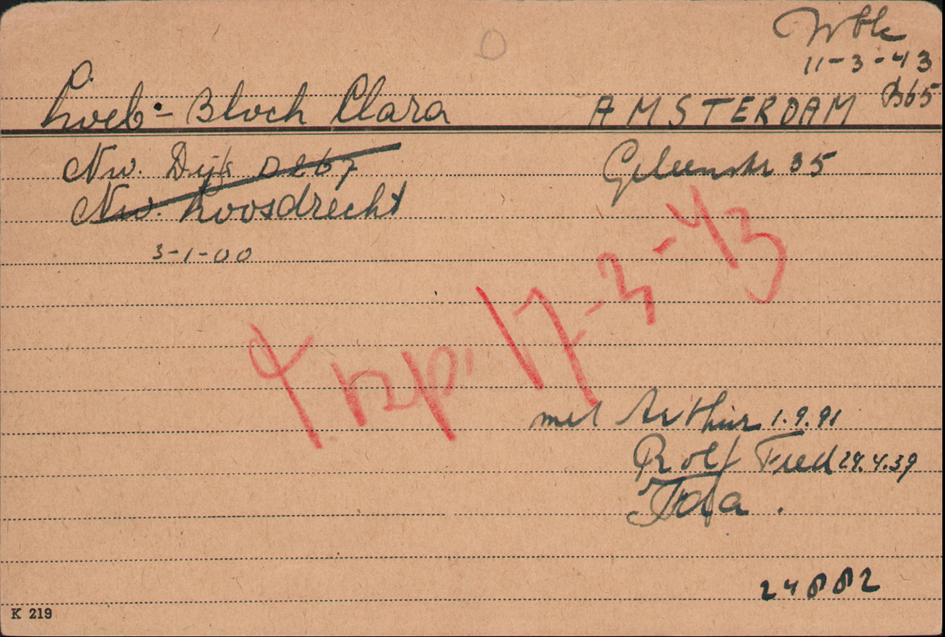 Wbk
11-3-43
Loeb-Bloch Clara AMSTERDAM B65
Nw. Dijk D267 Geleenstr 35
Nw. Loosdrecht
3-1-00
Trsp. 17-3-43
met Arthur 1.9.91
Rolf Fred 29.4.39
Ida.
24882
K 219